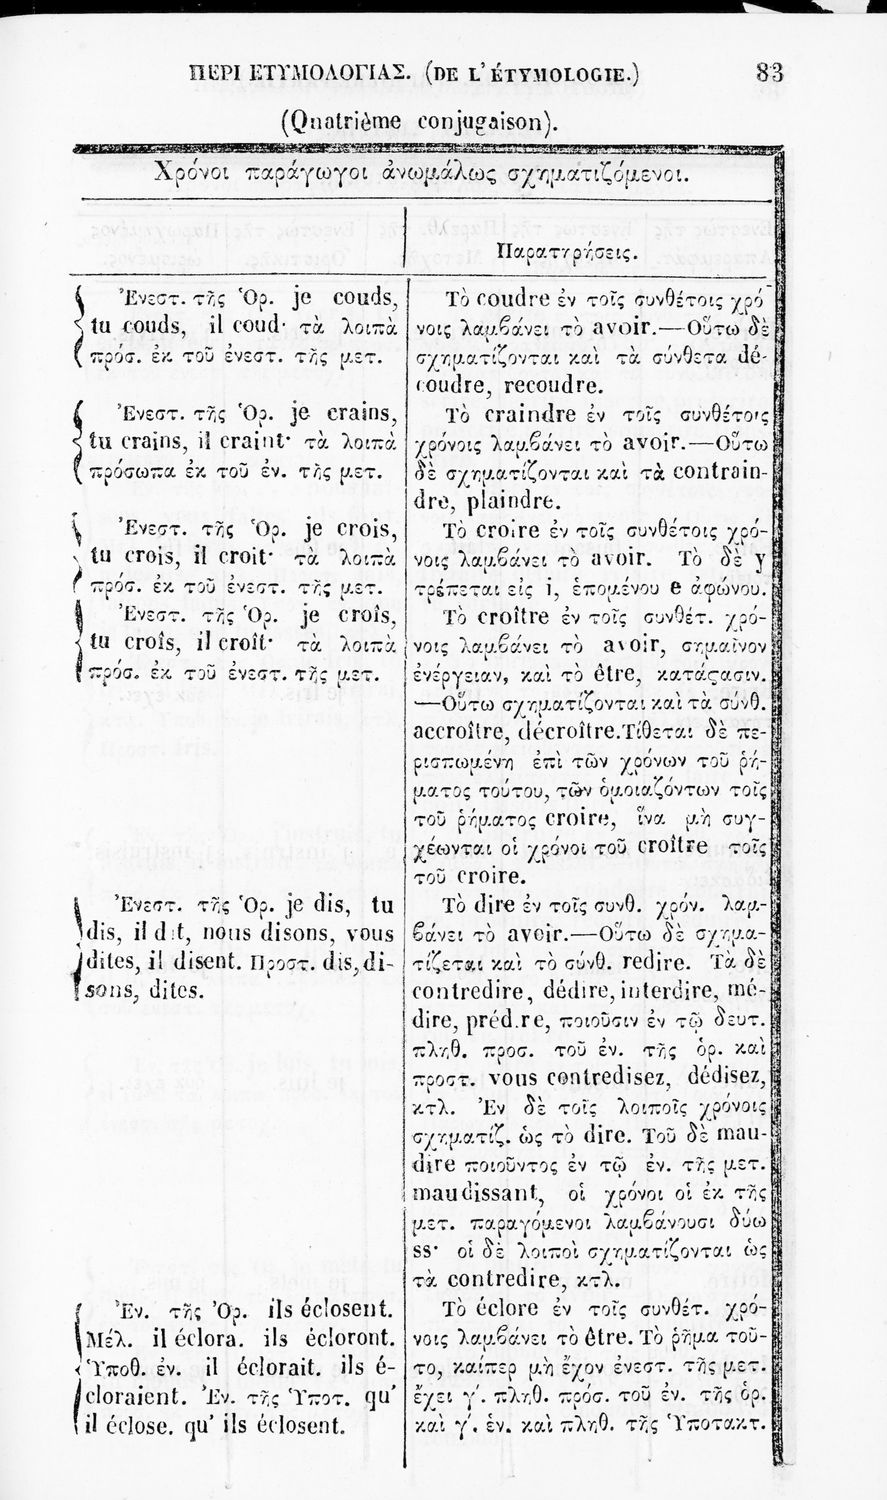 ΠΕΡΙ ΕΤΥΜΟΛΟΓΙΑΣ. (DE L'ÉTYMOLOGIE.) 83
(Quatrième conjugaison).
Χρόνοι παράγωγοι ἀνωμάλως σχηματιζόμενοι.
Ἐνεστ. τῆς Ὁρ. je couds,
tu couds, il coud· τὰ λοιπὰ
πρόσ. ἐκ τοῦ ἐνεστ. τῆς μετ.
Ἐνεστ. τῆς Ὁρ. je crains,
tu crains, il craint· τὰ λοιπὰ
πρόσωπα ἐκ τοῦ ἐν. τῆς μετ.
Ἐνεστ. τῆς Ὁρ. je crois,
tu crois, il croit· τὰ λοιπὰ
πρόσ. ἐκ τοῦ ἐνεστ. τῆς μετ.
Ἐνεστ. τῆς Ὁρ. je croîs,
tu croîs, il croît· τὰ λοιπὰ
πρόσ. ἐκ τοῦ ἐνεστ. τῆς μετ.
Ἐνεστ. τῆς Ὁρ. je dis, tu
dis, il dit, nous disons, vous
dites, il disent. Προστ. dis, di-
sons, dites.
Ἐν. τῆς Ὁρ. ils éclosent.
Μέλ. il éclora. ils écloront.
Ὑποθ. ἐν. il éclorait. ils é-
cloraient. Ἐν. τῆς Ὑποτ. qu'
il éclose. qu' ils éclosent.
Παρατηρήσεις.
Τὸ coudre ἐν τοῖς συνθέτοις χρό-
νοις λαμβάνει τὸ avoir.—Οὕτω δὲ
σχηματίζονται καὶ τὰ σύνθετα dé-
coudre, recoudre.
Τὸ craindre ἐν τοῖς συνθέτοις
χρόνοις λαμβάνει τὸ avoir.—Οὕτω
δὲ σχηματίζονται καὶ τὰ contrain-
dre, plaindre.
Τὸ croire ἐν τοῖς συνθέτοις χρό-
νοις λαμβάνει τὸ avoir. Τὸ δὲ y
τρέπεται εἰς i, ἑπομένου e ἀφώνου.
Τὸ croître ἐν τοῖς συνθέτ. χρό-
νοις λαμβάνει τὸ avoir, σημαῖνον
ἐνέργειαν, καὶ τὸ être, κατάστασιν.
—Οὕτω σχηματίζονται καὶ τὰ σύνθ.
accroître, décroître. Τίθεται δὲ πε-
ρισπωμένη ἐπὶ τῶν χρόνων τοῦ ῥή-
ματος τούτου, τῶν ὁμοιαζόντων τοῖς
τοῦ ῥήματος croire, ἵνα μὴ συγ-
χέωνται οἱ χρόνοι τοῦ croître τοῖς
τοῦ croire.
Τὸ dire ἐν τοῖς συνθ. χρόν. λαμ-
βάνει τὸ avoir.—Οὕτω δὲ σχημα-
τίζεται καὶ τὸ σύνθ. redire. Τὰ δὲ
contredire, dédire, interdire, mé-
dire, prédire, ποιοῦσιν ἐν τῷ δευτ.
πληθ. προσ. τοῦ ἐν. τῆς ὁρ. καὶ
προστ. vous contredisez, dédisez,
κτλ. Ἐν δὲ τοῖς λοιποῖς χρόνοις
σχηματίζ. ὡς τὸ dire. Τοῦ δὲ mau-
dire ποιοῦντος ἐν τῷ ἐν. τῆς μετ.
maudissant, οἱ χρόνοι οἱ ἐκ τῆς
μετ. παραγόμενοι λαμβάνουσι δύω
ss· οἱ δὲ λοιποὶ σχηματίζονται ὡς
τὰ contredire, κτλ.
Τὸ éclore ἐν τοῖς συνθέτ. χρό-
νοις λαμβάνει τὸ être. Τὸ ῥῆμα τοῦ-
το, καίπερ μὴ ἔχον ἐνεστ. τῆς μετ.
ἔχει γ΄. πληθ. πρόσ. τοῦ ἐν. τῆς ὁρ.
καὶ γ΄. ἑν. καὶ πληθ. τῆς Ὑποτακτ.